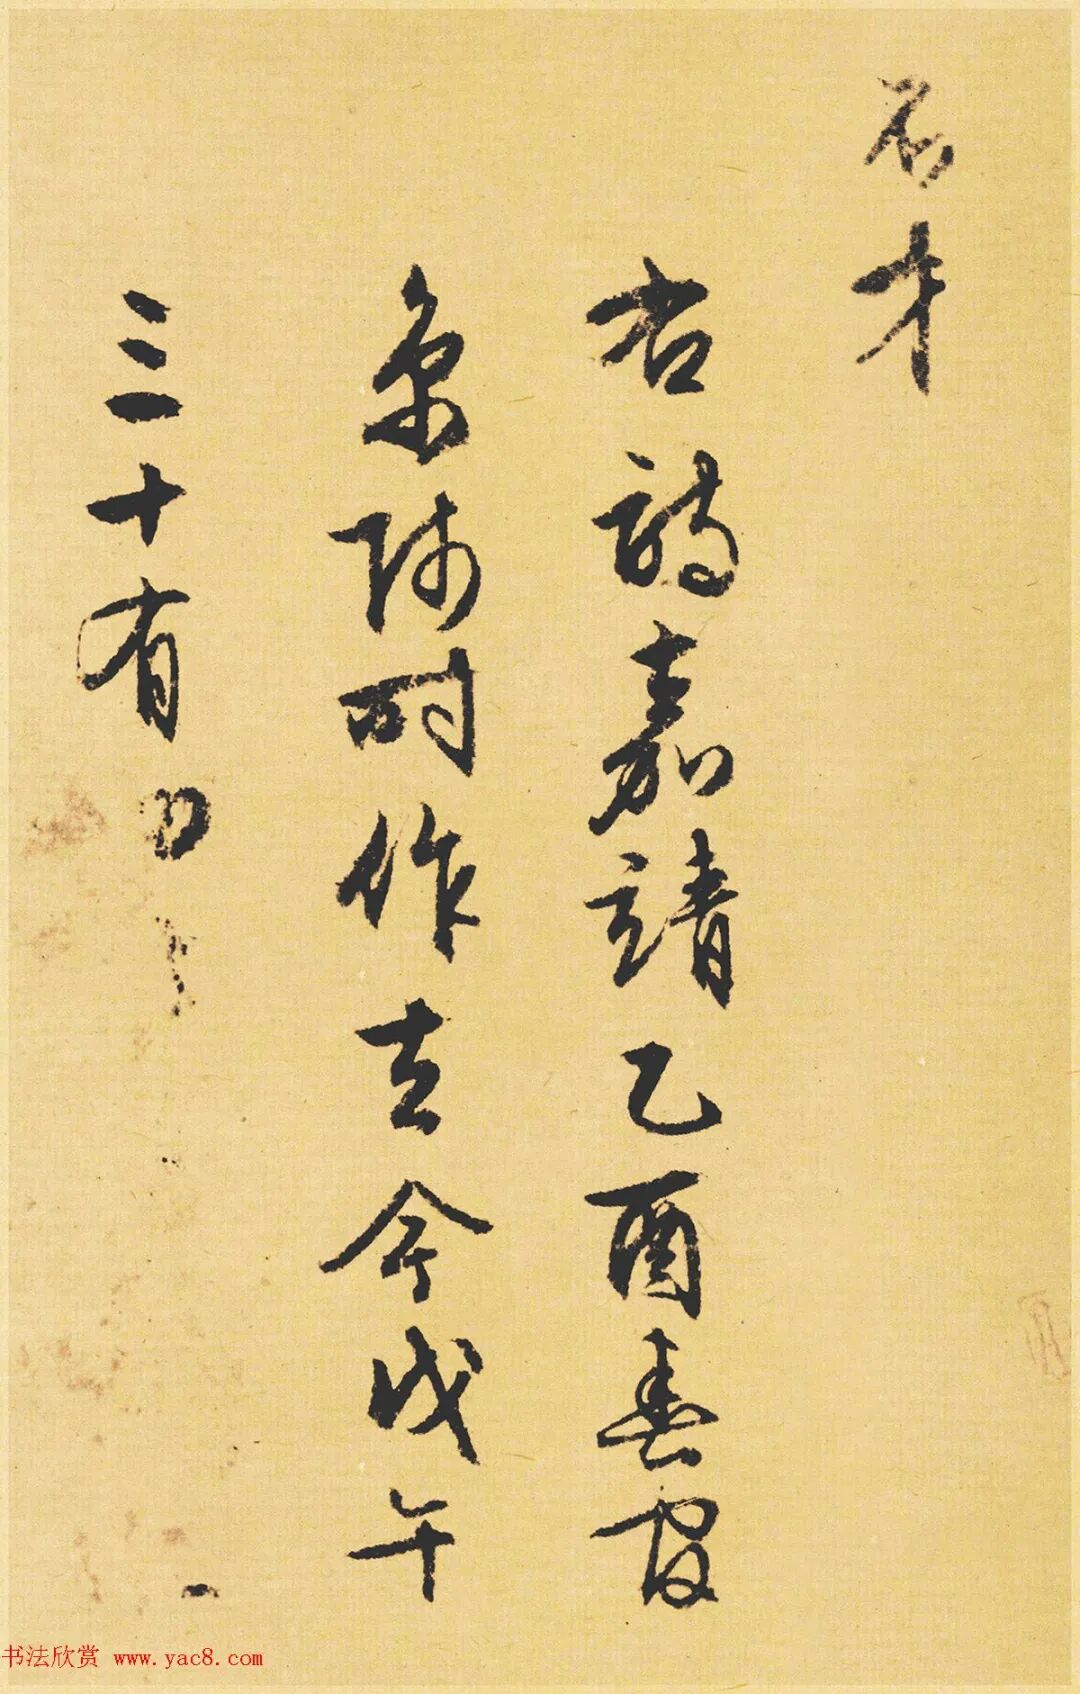 才
右詩嘉靖乙酉春官
京師時作去今戊午
三十有四
书法欣赏 www.yac8.com